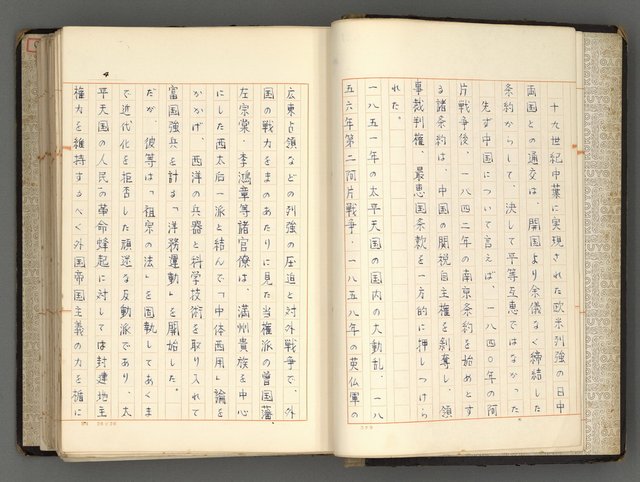 十九世紀中葉に実現された欧米列強の日中
両国との通交は、開国より余儀なく締結した
条約からして、決して平等互恵ではなかった
先ず中国について言えば、一八四〇年の阿
片戦争後、一八四二年の南京条約を始めとす
る諸条約は、中国の関税自主権を剥奪し、領
事裁判権、最恵国条款を一方的に押しつけら
れた。
一八五一年の太平天国の国内の大動乱、一八
五六年第二阿片戦争・一八五八年の英仏軍の
広東占領などの列強の圧迫と対外戦争で、外
国の戦力をまのあたりに見た当権派の曽国藩
左宗棠・李鴻章等諸官僚は、満州貴族を中心
にした西太后一派と結んで「中体西用」論を
かかげ、西洋の兵器と科学技術を取り入れて
富国強兵を計る「洋務運動」を開始した。
だが、彼等は「祖宗の法」を固執してあくま
で近代化を拒否した頑迷な反動派であり、太
平天国の人民の革命蜂起に対しては封建地主
権力を維持するべく外国帝国主義の力を楯に